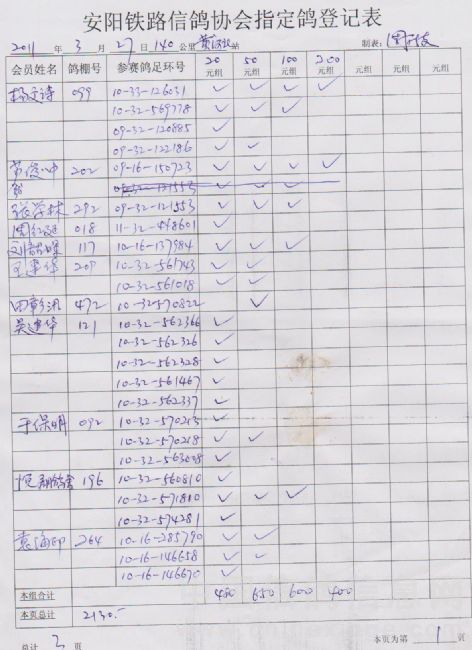 安阳铁路信鸽协会指定鸽登记表
2011 年 3 月 27 日 140 公里 站 制表:
会员姓名 鸽棚号 参赛鸽足环号 20元组 50元组 100元组 200元组 元组 元组 元组
099 10-33-126031 ✓ ✓ ✓ ✓
10-32-569778 ✓ ✓ ✓
09-32-120885 ✓
09-32-122186 ✓ ✓
202 09-16-150723 ✓ ✓ ✓ ✓
09-32-121553
张学林 292 09-32-121553 ✓ ✓ ✓
周红廷 018 11-32-448601 ✓
117 10-16-137984 ✓ ✓ ✓
209 10-32-561743 ✓ ✓
10-32-561018 ✓ ✓
472 10-32-570822 ✓
吴建华 121 10-32-562366 ✓
10-32-562326 ✓
10-32-562328 ✓
10-32-561467 ✓
10-32-562337 ✓
于保明 092 10-32-570213 ✓
10-32-570218 ✓ ✓
10-32-563008 ✓
196 10-32-560810 ✓
10-32-571810 ✓ ✓ ✓
10-32-574281 ✓
袁海印 264 10-16-285790 ✓ ✓
10-16-146658 ✓ ✓
10-16-146670 ✓
本组合计 480 650 600 400
本页总计 2130.-
总计 2 页 本页为第 1 页